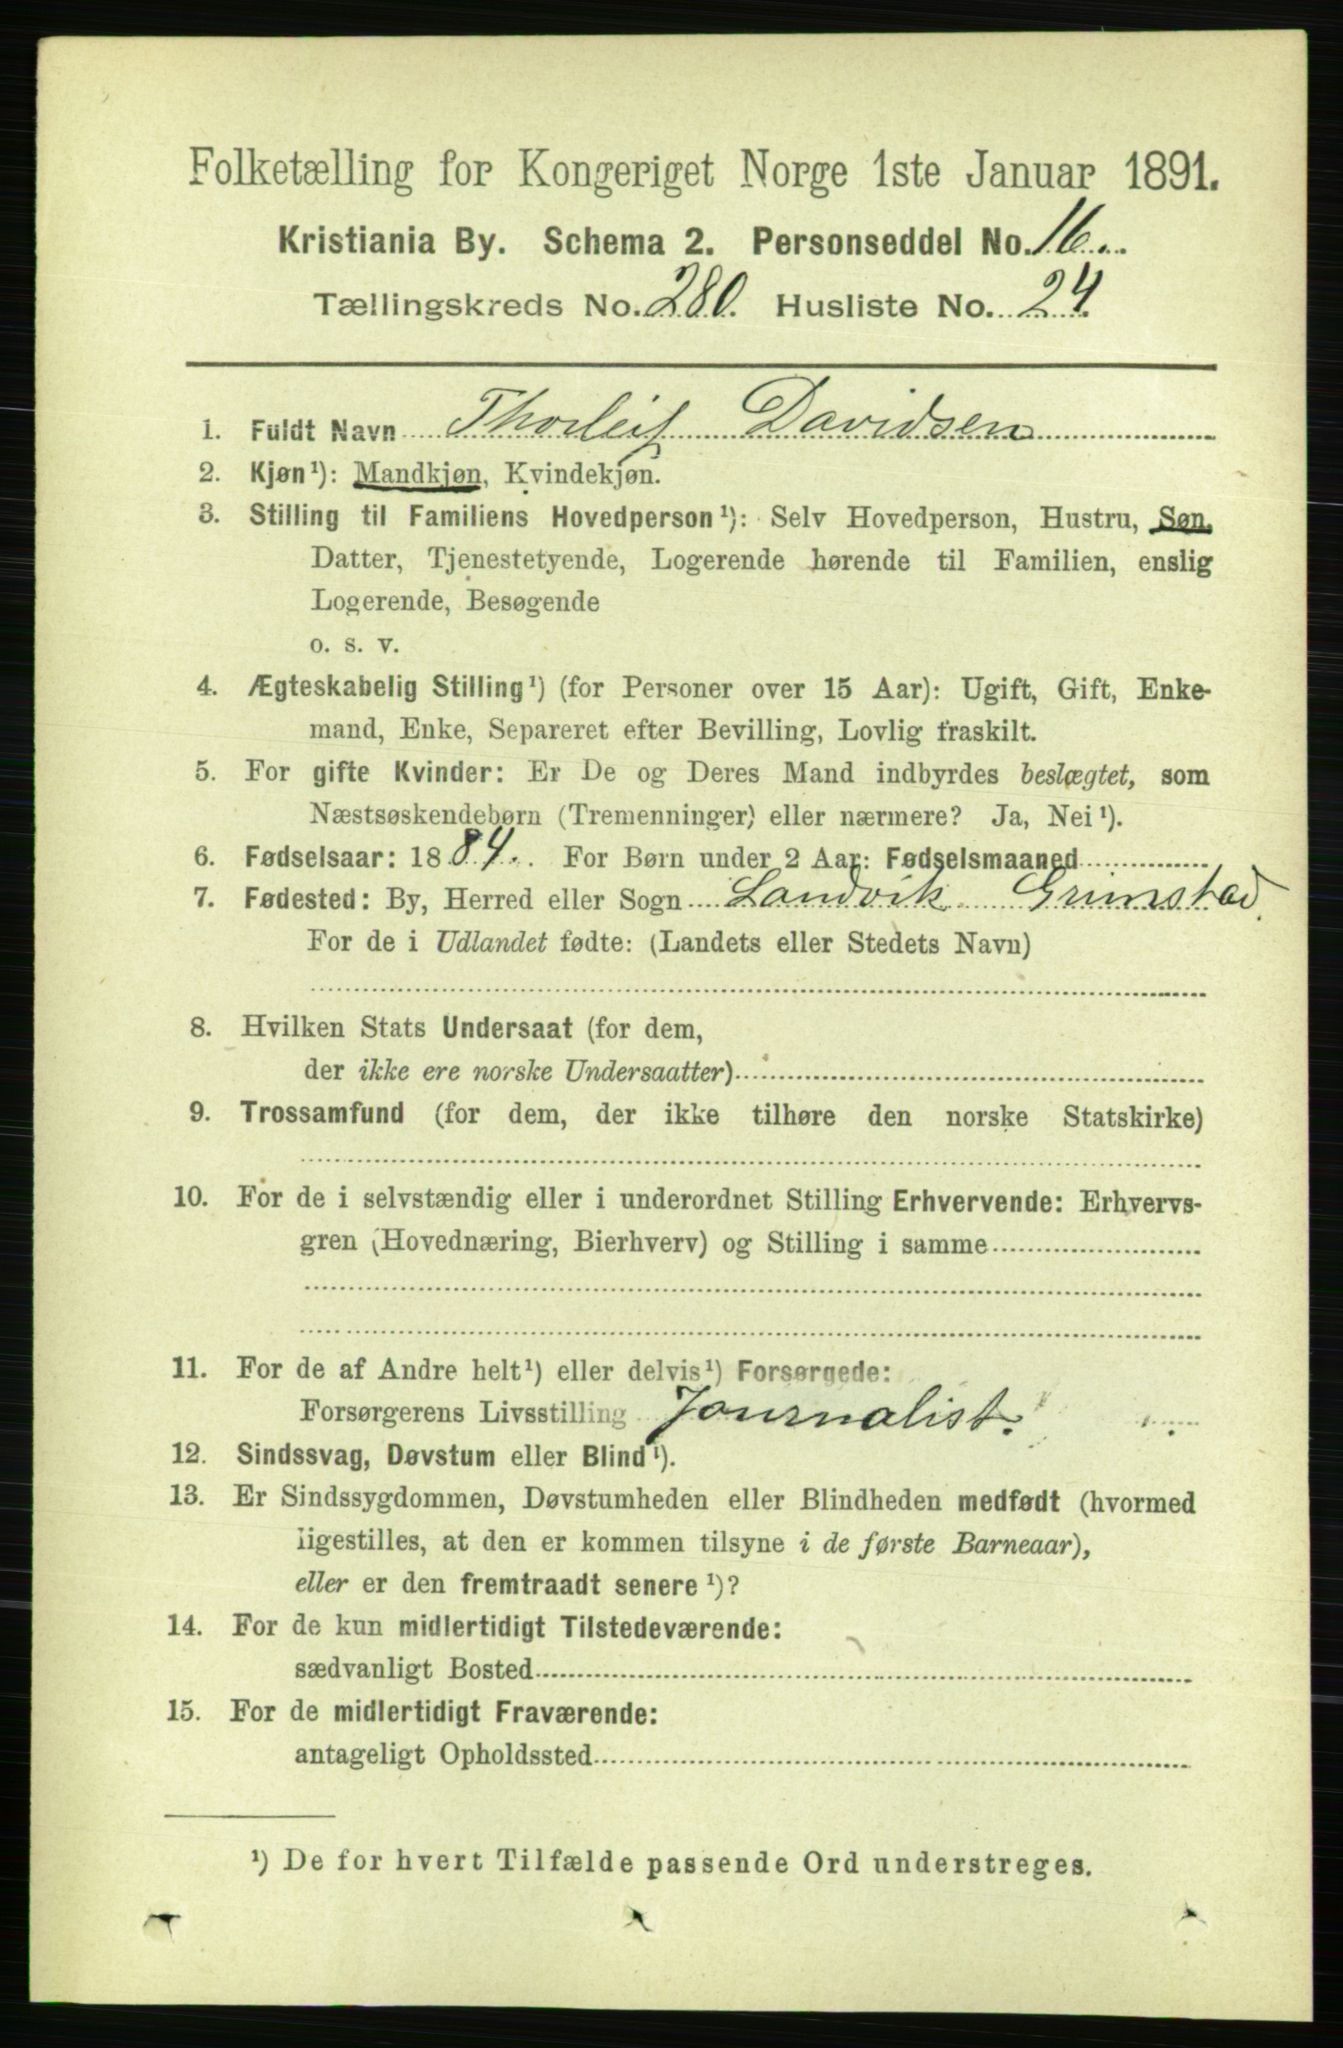 Folketælling for Kongeriget Norge 1ste Januar 1891.
Kristiania By. Schema 2. Personseddel No. 16.
Tællingskreds No. 280. Husliste No. 24.
1. Fuldt Navn Thorleif Davidsen
2. Kjøn¹): Mandkjøn, Kvindekjøn.
3. Stilling til Familiens Hovedperson¹): Selv Hovedperson, Hustru, Søn,
Datter, Tjenestetyende, Logerende hørende til Familien, enslig
Logerende, Besøgende
o. s. v.
4. Ægteskabelig Stilling¹) (for Personer over 15 Aar): Ugift, Gift, Enke-
mand, Enke, Separeret efter Bevilling, Lovlig fraskilt.
5. For gifte Kvinder: Er De og Deres Mand indbyrdes beslægtet, som
Næstsøskendebørn (Tremenninger) eller nærmere? Ja, Nei¹).
6. Fødselsaar: 1884. For Børn under 2 Aar: Fødselsmaaned
7. Fødested: By, Herred eller Sogn Landvik Grimstad
For de i Udlandet fødte: (Landets eller Stedets Navn)
8. Hvilken Stats Undersaat (for dem,
der ikke ere norske Undersaatter)
9. Trossamfund (for dem, der ikke tilhøre den norske Statskirke)
10. For de i selvstændig eller i underordnet Stilling Erhvervende: Erhvervs-
gren (Hovednæring, Bierhverv) og Stilling i samme
11. For de af Andre helt¹) eller delvis¹) Forsørgede:
Forsørgerens Livsstilling Journalist.
12. Sindssvag, Døvstum eller Blind¹).
13. Er Sindssygdommen, Døvstumheden eller Blindheden medfødt (hvormed
ligestilles, at den er kommen tilsyne i de første Barneaar),
eller er den fremtraadt senere¹)?
14. For de kun midlertidigt Tilstedeværende:
sædvanligt Bosted
15. For de midlertidigt Fraværende:
antageligt Opholdssted
¹) De for hvert Tilfælde passende Ord understreges.